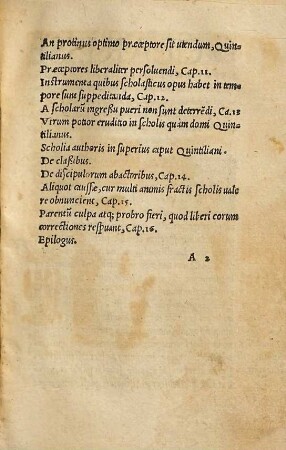 An protinus optimo præceptore sit utendum, Quin-
tilianus.
Præceptores liberaliter persoluendi, Cap. 11.
Instrumenta quibus scholasticus opus habet in tem
pore sunt suppeditāda, Cap. 12.
A scholarū ingressu pueri non sunt deterrēdi, Ca. 13
Virum potior eruditio in scholis quàm domi Quin-
tilianus.
Scholia authoris in superius caput Quintiliani.
De classibus.
De discipulorum abactoribus, Cap. 14.
Aliquot caussæ, cur multi annis fractis scholis uale
re obnuncient, Cap. 15.
Parentū culpa atq; probro fieri, quod liberi eorum
correctiones respuant, Cap. 16.
Epilogus.
A 2